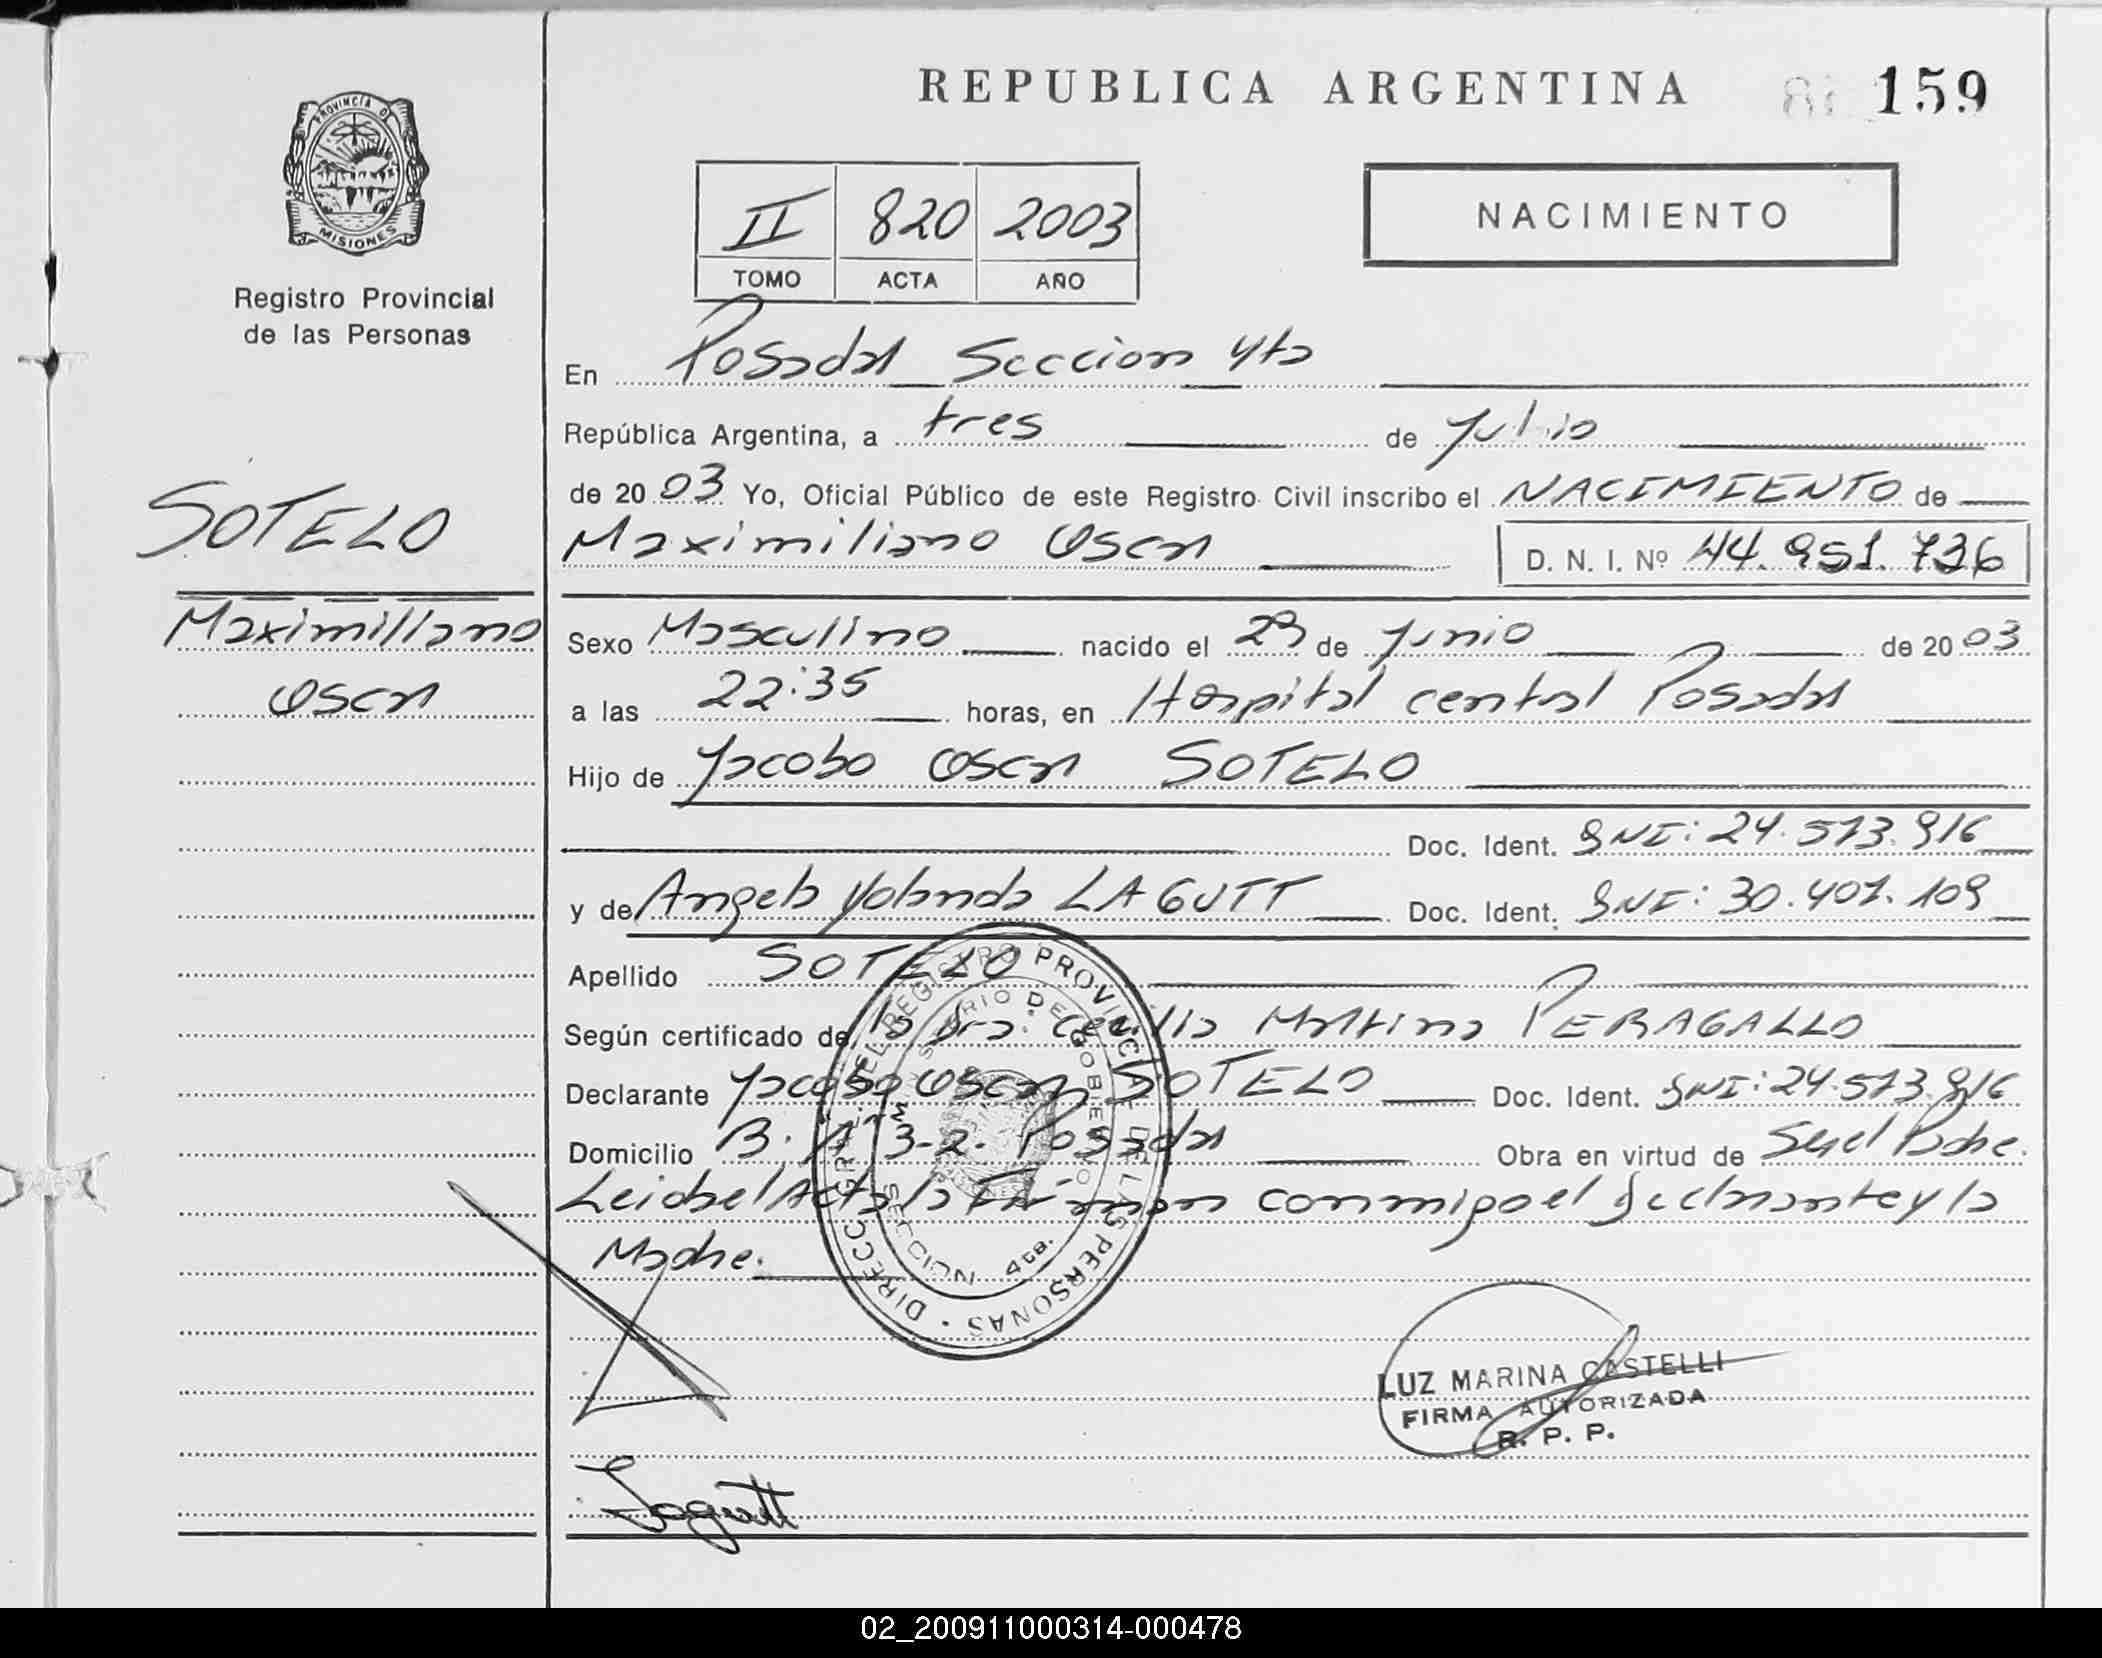 REPUBLICA ARGENTINA
159
PROVINCIA DE
MISIONES
Registro Provincial
de las Personas
II 820 2003
TOMO ACTA AÑO
NACIMIENTO
En Posadas Seccion 4ta
República Argentina, a tres de Julio
de 2003 Yo, Oficial Público de este Registro Civil inscribo el NACIMIENTO de
SOTELO
Maximiliano Oscar D. N. I. Nº 44.951.736
Maximiliano
Oscar
Sexo Masculino nacido el 29 de Junio de 2003
a las 22:35 horas, en Hospital central Posadas
Hijo de Jacobo Oscar SOTELO
Doc. Ident. DNI: 24.573.916
y de Angela Yolanda LAGUTT Doc. Ident. DNI: 30.407.109
Apellido SOTELO
Según certificado de la Dra. Cecilia Martina PERAGALLO
Declarante Jacobo Oscar SOTELO Doc. Ident. DNI: 24.573.916
Domicilio Posadas Obra en virtud de Ser el Padre.
Leida el Acta la Firman conmigo el declarante y la
Madre.
DIRECC. GRAL. DEL REGISTRO PROVINCIAL DE LAS PERSONAS
MINISTERIO DE GOBIERNO
SECCION 4ta.
LUZ MARINA CASTELLI
FIRMA AUTORIZADA
R. P. P.
Lagutt
02_200911000314-000478